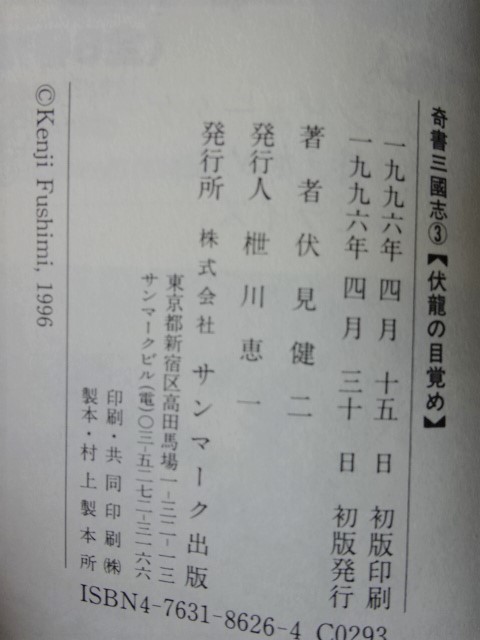 奇書三國志③【伏龍の目覚め】
一九九六年 四月 十五日 初版印刷
一九九六年 四月 三十日 初版発行
著者 伏見健二
発行人 枻川恵一
発行所 株式会社 サンマーク出版
東京都新宿区高田馬場一−三二−一三
サンマークビル(電)〇三−五二七二−三一六六
印刷・共同印刷㈱
製本・村上製本所
©Kenji Fushimi, 1996
ISBN4-7631-8626-4 C0293